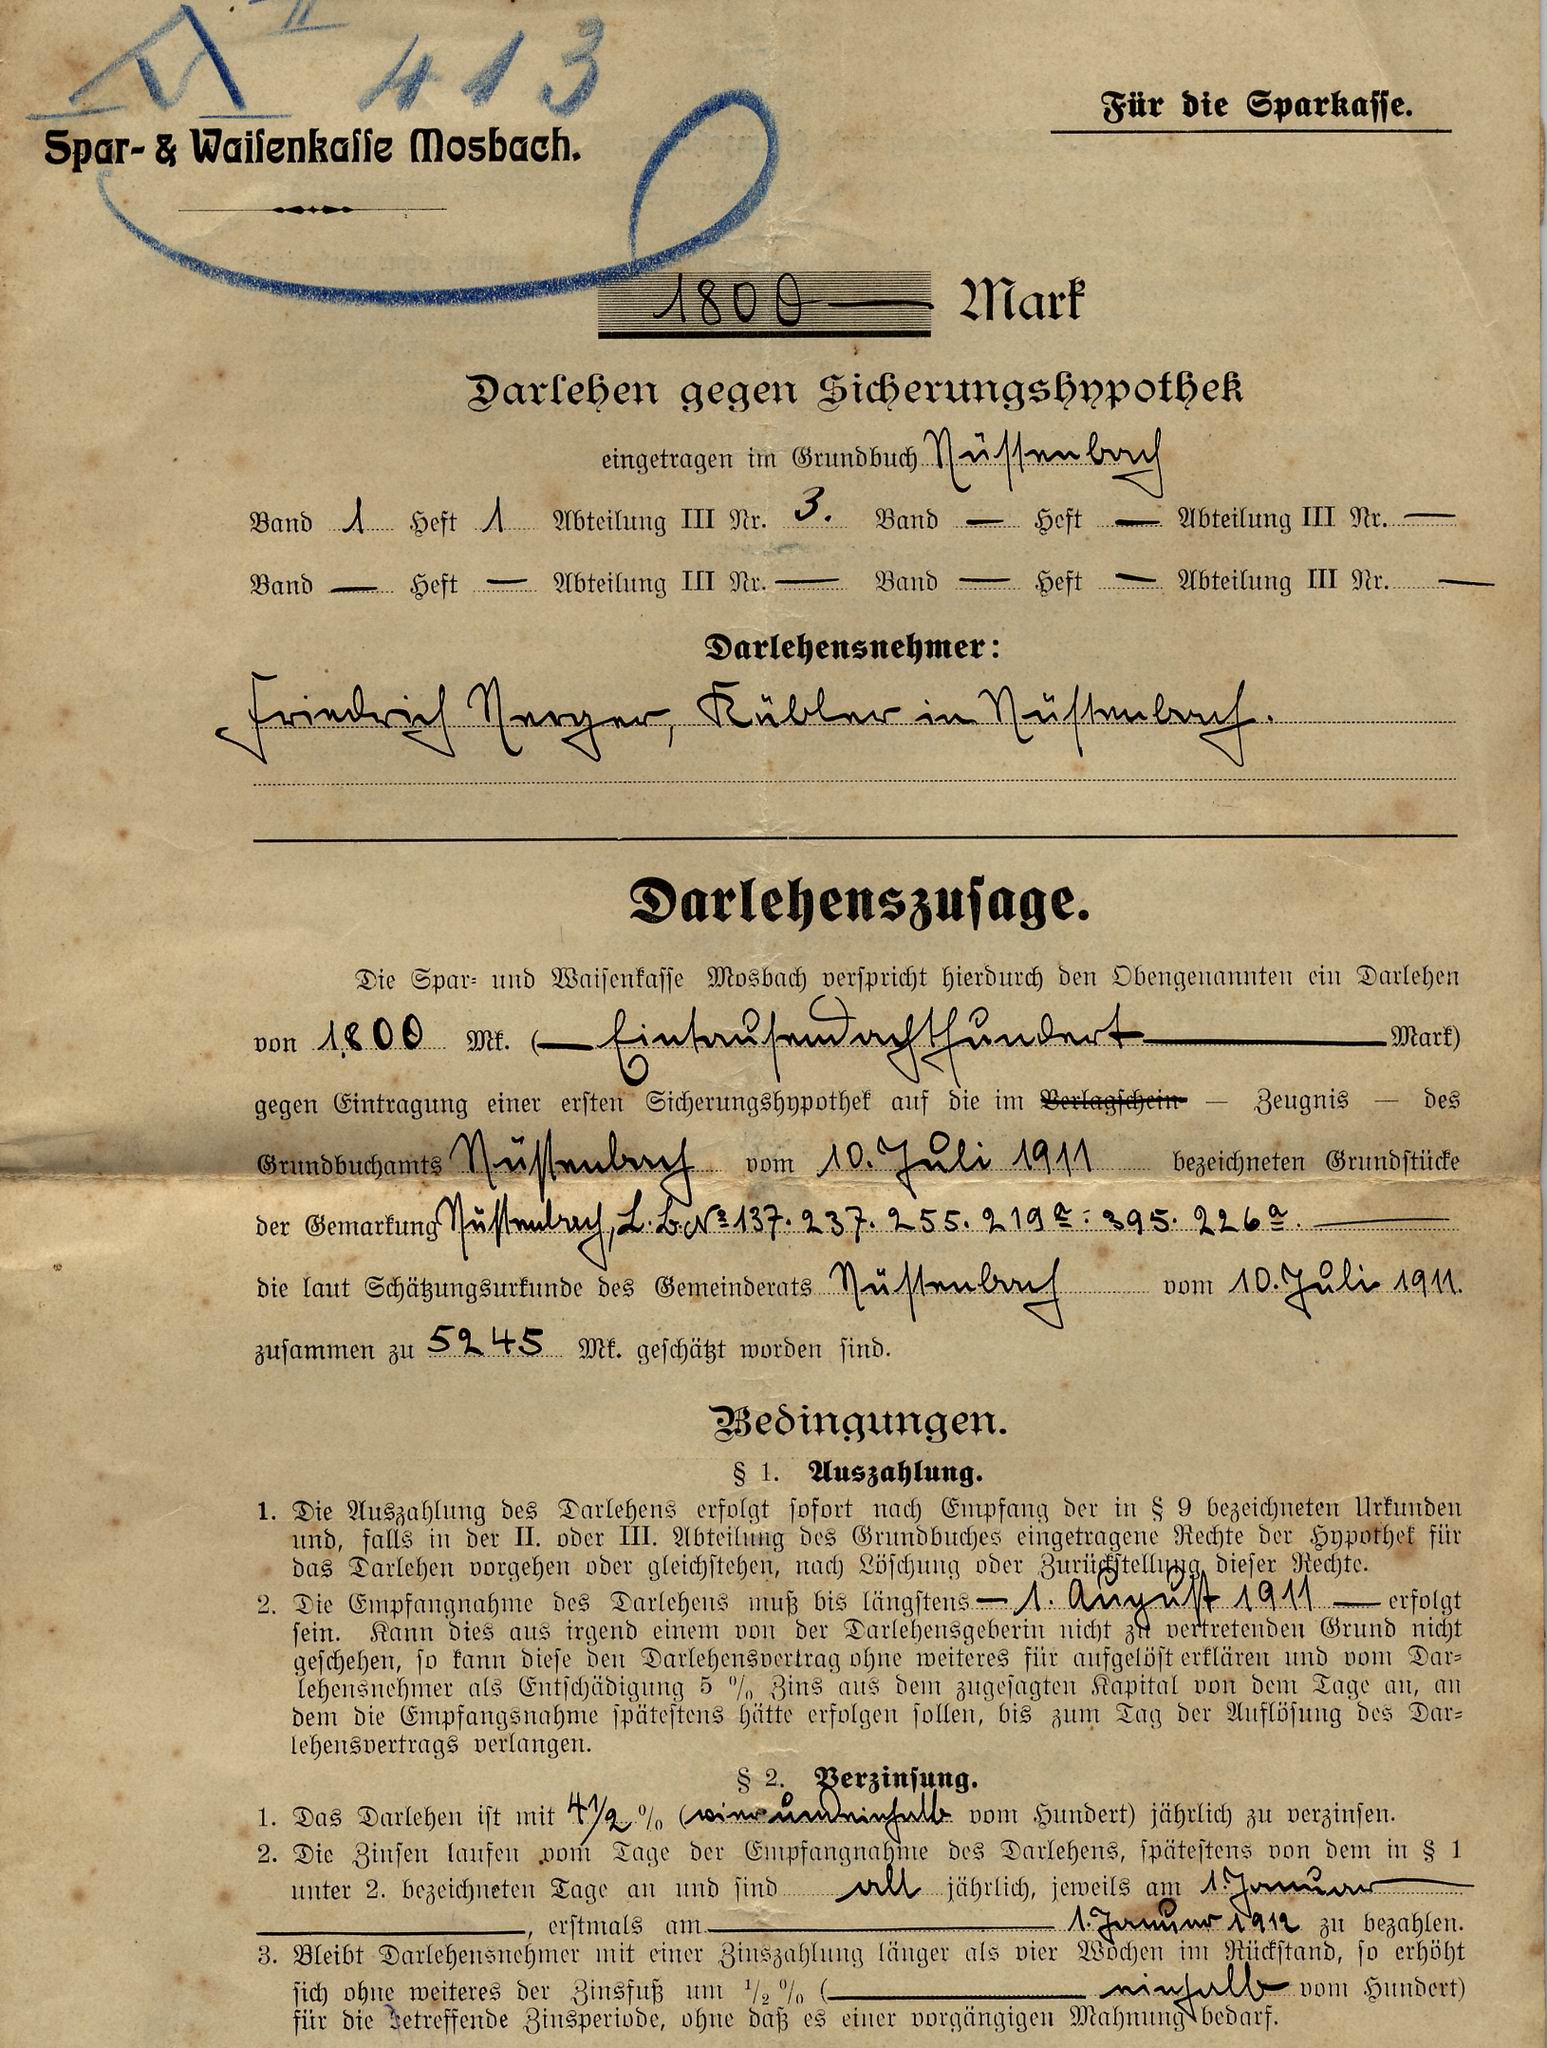 II
VI 413
Für die Sparkasse.
Spar- & Waisenkasse Mosbach.
1800 Mark
Darlehen gegen Sicherungshypothek
eingetragen im Grundbuch Nüstenbach
Band 1 Heft 1 Abteilung III Nr. 3. Band — Heft — Abteilung III Nr. —
Band — Heft — Abteilung III Nr. — Band — Heft — Abteilung III Nr. —
Darlehensnehmer:
Friedrich Nerger, Kübler in Nüstenbach.
Darlehenszusage.
Die Spar- und Waisenkasse Mosbach verspricht hierdurch den Obengenannten ein Darlehen
von 1800 Mk. (— Eintausendachthundert — Mark)
gegen Eintragung einer ersten Sicherungshypothek auf die im Verlagschein — Zeugnis — des
Grundbuchamts Nüstenbach vom 10. Juli 1911 bezeichneten Grundstücke
der Gemarkung Nüstenbach, L. B. No 137. 237. 255. 219a. 395. 226a. —
die laut Schätzungsurkunde des Gemeinderats Nüstenbach vom 10. Juli 1911.
zusammen zu 5245 Mk. geschätzt worden sind.
Bedingungen.
§ 1. Auszahlung.
1. Die Auszahlung des Darlehens erfolgt sofort nach Empfang der in § 9 bezeichneten Urkunden
und, falls in der II. oder III. Abteilung des Grundbuches eingetragene Rechte der Hypothek für
das Darlehen vorgehen oder gleichstehen, nach Löschung oder Zurückstellung dieser Rechte.
2. Die Empfangnahme des Darlehens muß bis längstens — 1. August 1911 — erfolgt
sein. Kann dies aus irgend einem von der Darlehensgeberin nicht zu vertretenden Grund nicht
geschehen, so kann diese den Darlehensvertrag ohne weiteres für aufgelöst erklären und vom Dar-
lehensnehmer als Entschädigung 5 % Zins aus dem zugesagten Kapital von dem Tage an, an
dem die Empfangsnahme spätestens hätte erfolgen sollen, bis zum Tag der Auflösung des Dar-
lehensvertrags verlangen.
§ 2. Verzinsung.
1. Das Darlehen ist mit 4 1/2 % (vierundeinhalb vom Hundert) jährlich zu verzinsen.
2. Die Zinsen laufen vom Tage der Empfangnahme des Darlehens, spätestens von dem in § 1
unter 2. bezeichneten Tage an und sind all jährlich, jeweils am 1. Januar —
—, erstmals am — 1. Januar 1912 zu bezahlen.
3. Bleibt Darlehensnehmer mit einer Zinszahlung länger als vier Wochen im Rückstand, so erhöht
sich ohne weiteres der Zinsfuß um 1/2 % (— einhalb vom Hundert)
für die betreffende Zinsperiode, ohne daß es einer vorgängigen Mahnung bedarf.